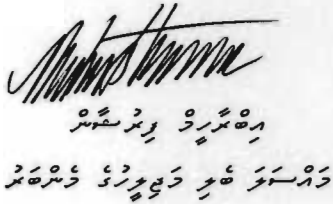 އިބްރާހީމް ފިރުޝާން
މައްސަލަ ބެލި މަޖިލީހުގެ މެންބަރު